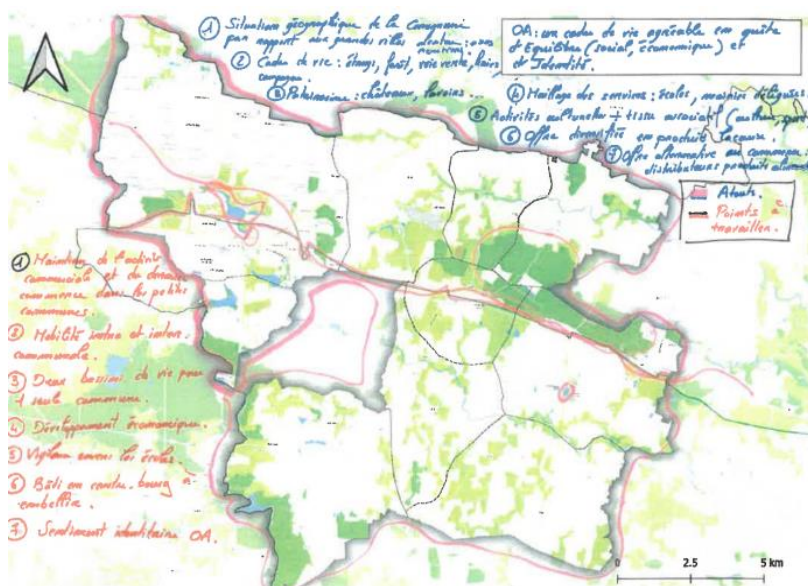 ① Situation géographique de la Commune
par rapport aux grandes villes alentour
② Cadre de vie : étangs, forêt, voie verte,
campagne
③ Patrimoine : châteaux, lavoirs...
OA : un cadre de vie agréable en quête
d'Equilibre (social, économique) et
d'Identité.
④ Maillage des services : écoles, mairies déléguées
⑤ Activités culturelles + tissu associatif
⑥ Offre diversifiée en produit
⑦ Offre alternative au commerce :
distributeurs produits
Atouts.
Points à
travailler.
① Maintien de l'activité
commerciale et du dernier
commerce dans les petites
communes.
② Mobilité intra et inter-
communale.
③ Deux bassins de vie pour
1 seule commune.
④ Développement économique.
⑤ Vigilance envers les écoles.
⑥ Bâti en centre-bourg à
embellir.
⑦ Sentiment identitaire OA.
0 2.5 5 km